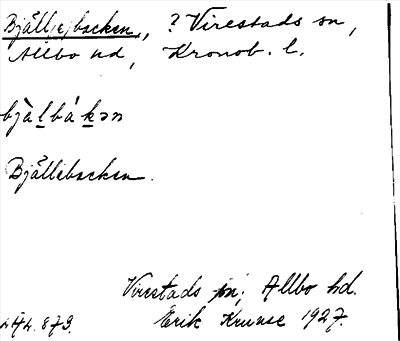 Bjäll(e)backen, ? Virestads sn,
Allbo hd, Kronob. l.
bjàlbákən
Bjällebacken.
Virestads sn; Allbo hd.
Erik Kruuse 1927.